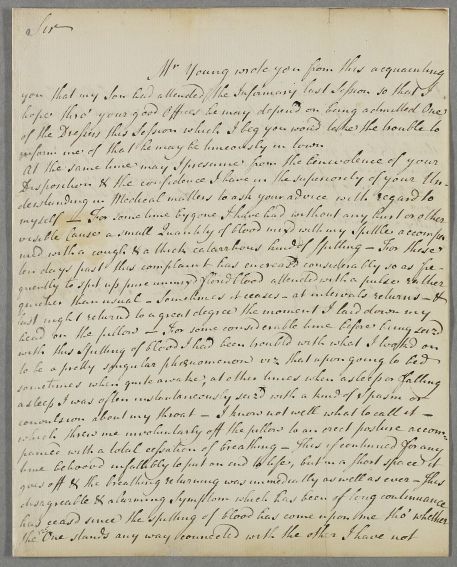 Sir
Mr Young wrote you from this acquainting
you that my Son had attended the Infirmary last Session so that I
hope thro' your good Offices he may depend on being admitted One
of the Dressers this Session which I beg you would take the trouble to
inform me of that he may be timeously in town
At the same time may I presume from the benevolence of your
Disposition & the confidence I have in the superiority of your Un-
derstanding in Medical matters to ask your advice with regard to
myself — For some time bygone I have had without any hurt or other
visible Cause a small Quantity of blood mixd with my Spittle accompa
nied with a cough & a thick catarrhous kind of spitting — For these
ten days past this complaint has encreasd considerably so as fre-
quently to spit up pure unmixd florid blood attended with a pulse rather
quicker than usual — Sometimes it ceases — at intervals returns — &
last night returned to a great degree the moment I laid down my
head on the pillow — For some considerable time before being seizd
with this Spitting of blood I had been troubled with what I looked on
to be a pretty singular phœnomenon viz that upon going to bed
sometimes when quite awake, at other times when asleep or falling
asleep I was often instantaneously seizd with a kind of spasm or
convulsion about my throat — I know not well what to call it —
which threw me involuntarly off the pillow to an erect posture accom-
panied with a total cessation of breathing — This if continued for any
time behooved infallibly to put an end to life, but in a short space it
goes off & the breathing returning was immediatly as well as ever — This
disagreable & alarming symptom which has been of long continuance
has ceasd since the spitting of blood has come upon me tho' whether
the One stands any way connected with the other I have not